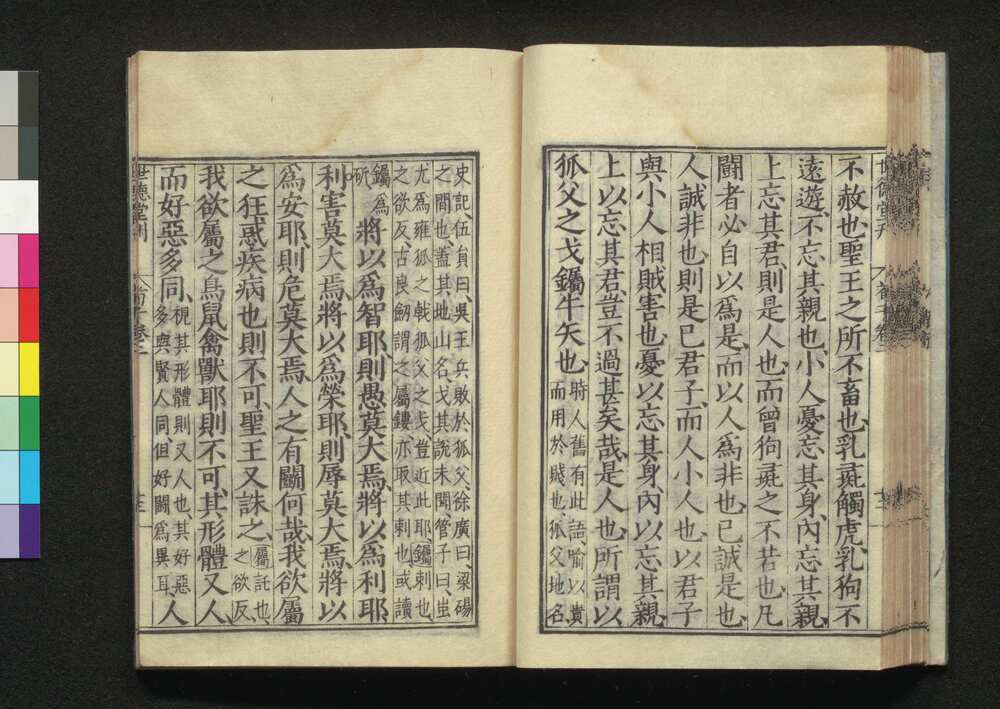 不赦也、聖王之所不畜也、乳彘觸虎、乳狗不
遠遊、不忘其親也、小人憂忘其身、內忘其親、
上忘其君、則是人也、而曾狗彘之不若也、凡
鬭者必自以爲是、而以人爲非也、已誠是也、
人誠非也、則是已君子、而人小人也、以君子
與小人相賊害也、憂以忘其身、內以忘其親、
上以忘其君、豈不過甚矣哉、是人也、所謂以
狐父之戈钃牛矢也、時人舊有此語、喻以貴
而用於賤也、狐父地名
史記、伍員曰、吳王兵敗於狐父、徐廣曰、梁碭
之間也、蓋其地山名戈其說未聞、管子曰、蚩
尤爲雍狐之戟狐父之戈豈近此耶、钃刺也、
之欲反、古良劒謂之屬鏤亦取其刺也、或讀
钃爲
斫
將以爲智耶、則愚莫大焉、將以爲利耶
利害莫大焉、將以爲榮耶、則辱莫大焉、將以
爲安耶、則危莫大焉、人之有鬭何哉、我欲屬
之狂惑疾病也、則不可、聖王又誅之、屬託也、
之欲反、
我欲屬之鳥鼠禽獸耶、則不可、其形體又人、
而好惡多同、視其形體則又人也、其好惡
多與賢人同、但好鬭爲異耳、人
世德堂刊